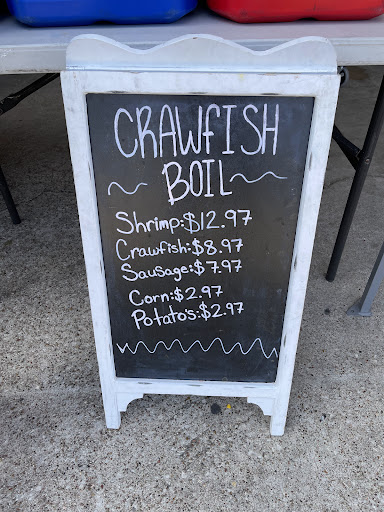 CRAWFISH
~ BOIL ~
Shrimp:$12.97
Crawfish:$8.97
Sausage:$7.97
Corn:$2.97
Potato's:$2.97